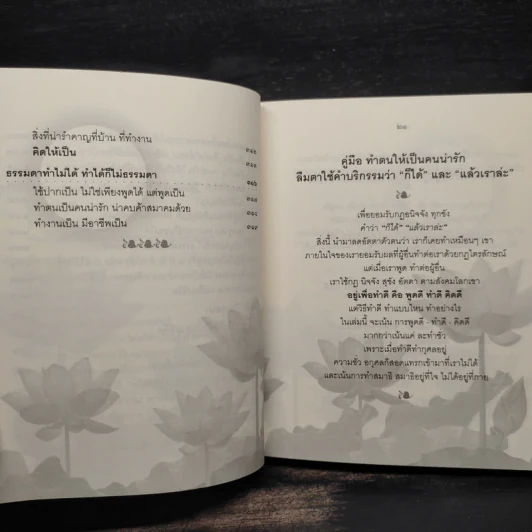 สิ่งที่น่ารำคาญที่บ้าน ที่ทำงาน
คิดให้เป็น
ธรรมดาทำไม่ได้ ทำได้ก็ไม่ธรรมดา
ใช้ปากเป็น ไม่ใช่เพียงพูดได้ แต่พูดเป็น
ทำตนเป็นคนน่ารัก น่าคบค้าสมาคมด้วย
ทำงานเป็น มีอาชีพเป็น
คู่มือ ทำตนให้เป็นคนน่ารัก
ลืมตาใช้คำบริกรรมว่า “ก็ได้” และ “แล้วเราล่ะ”
เพื่อยอมรับกฎอนิจจัง ทุกขัง
คำว่า “ก็ได้” “แล้วเราล่ะ”
สิ่งนี้ นำมาลดอัตตาตัวตนว่า เราก็เคยทำเหมือนๆ เขา
ภายในใจของเรายอมรับผลที่ผู้อื่นทำต่อเราด้วยกฎไตรลักษณ์
แต่เมื่อเราพูด ทำต่อผู้อื่น
เราใช้กฎ นิจจัง สุขัง อัตตา ตามสังคมโลกเขา
อยู่เพื่อทำดี คือ พูดดี ทำดี คิดดี
แต่วิธีทำดี ทำแบบไหน ทำอย่างไร
ในเล่มนี้ จะเน้น การพูดดี - ทำดี - คิดดี
มากกว่าเน้นแค่ ละทำชั่ว
เพราะเมื่อทำดีทำกุศลอยู่
ความชั่ว อกุศลก็สอดแทรกเข้ามาที่เราไม่ได้
และเน้นการทำสมาธิ สมาธิอยู่ที่ใจ ไม่ได้อยู่ที่กาย